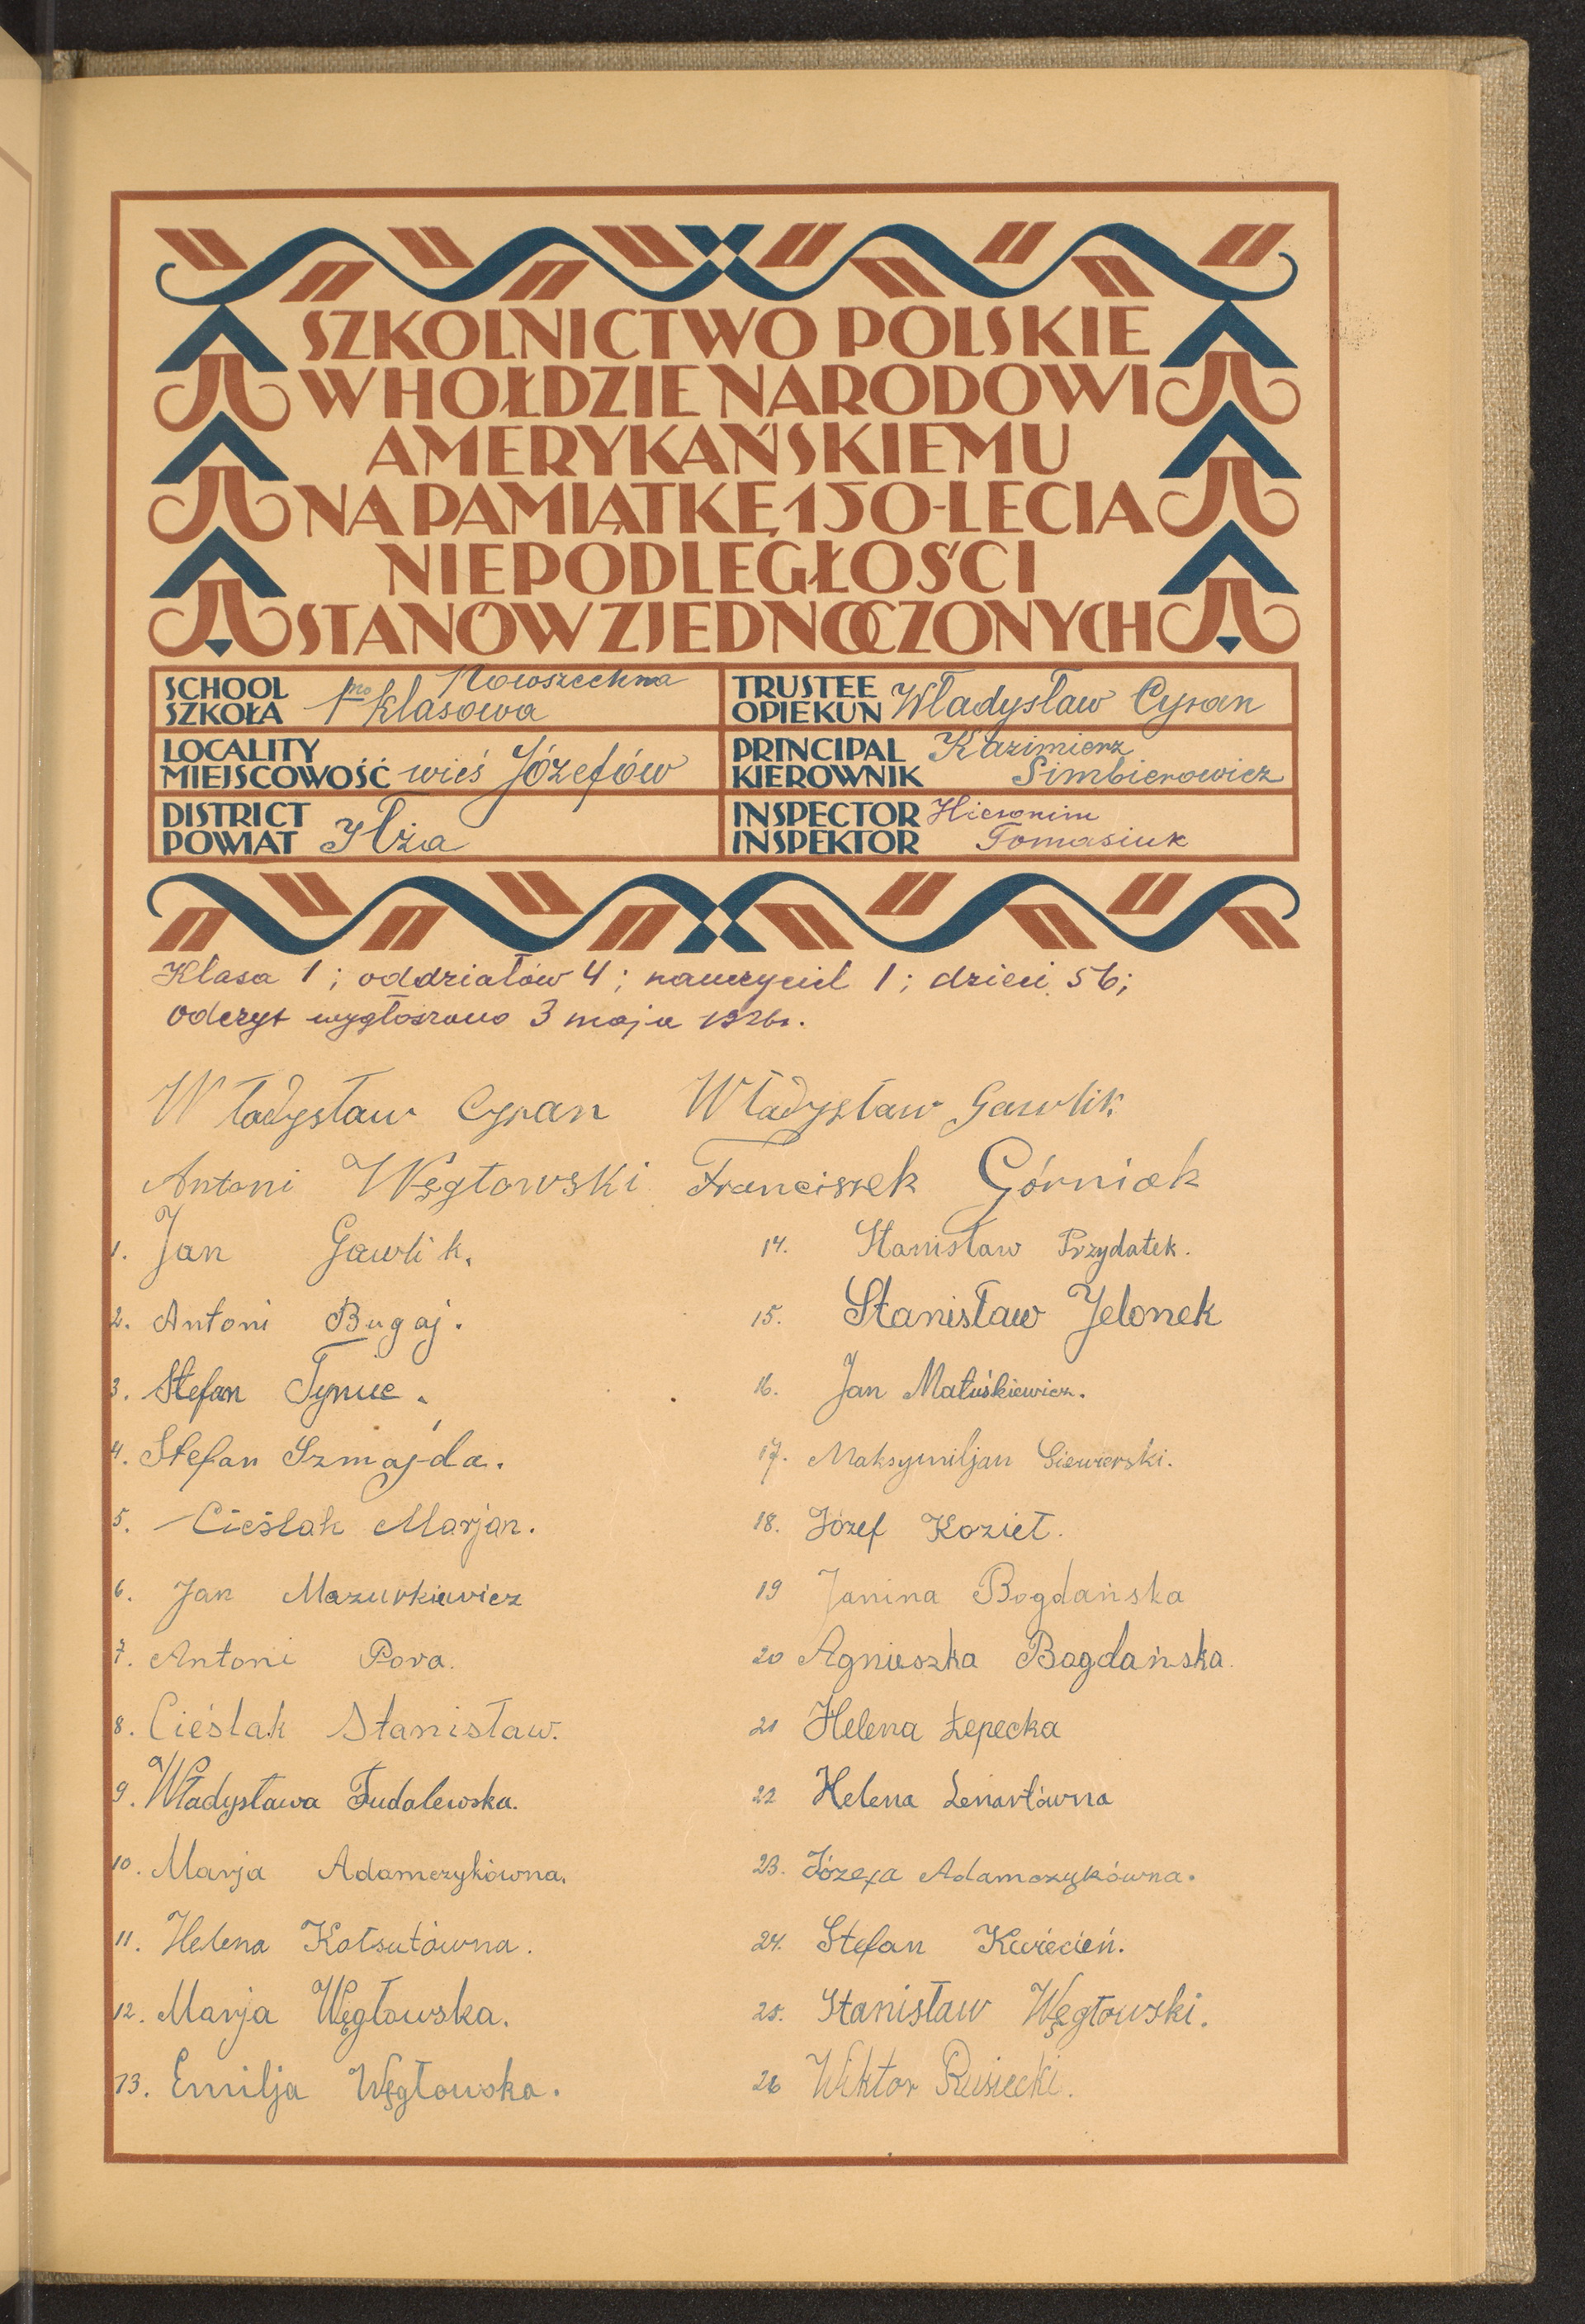 SZKOLNICTWO POLSKIE
W HOŁDZIE NARODOWI
AMERYKAŃSKIEMU
NA PAMIĄTKĘ 150-LECIA
NIEPODLEGŁOŚCI
STANÓW ZJEDNOCZONYCH
SCHOOL
SZKOŁA
Powszechna
1no klasowa
TRUSTEE
OPIEKUN
Władysław Cyran
LOCALITY
MIEJSCOWOŚĆ
wieś Józefów
PRINCIPAL
KIEROWNIK
Kazimierz
Simbierowicz
DISTRICT
POWIAT
Iłża
INSPECTOR
INSPEKTOR
Hieronim
Tomasiuk
Klasa 1; oddziałów 4; nauczyciel 1; dzieci 56;
odczyt wygłoszono 3 maja 1926r.
Władysław Cyran
Władysław Gawlik
Antoni Węgłowski
Franciszek Górniak
1. Jan Gawlik.
2. Antoni Bugaj.
3. Stefan Tyniec.
4. Stefan Szmajda.
5. Cieślak Marjan.
6. Jan Mazurkiewicz
7. Antoni Pora.
8. Cieślak Stanisław.
9. Władysława Fudalewska.
10. Marja Adamczykówna.
11. Helena Kołsutówna.
12. Marja Węgłowska.
13. Emilja Węgłowska.
14. Stanisław Przydatek.
15. Stanisław Jelonek
16. Jan Matuśkiewicz.
17. Maksymiljan Siewierski.
18. Józef Kozieł.
19 Janina Bogdańska
20 Agnieszka Bogdańska.
21 Helena Łepecka
22 Helena Lenartówna
23. Józefa Adamczykówna.
24. Stefan Kwiecień.
25. Stanisław Węgłowski.
26 Wiktor Rusiecki.